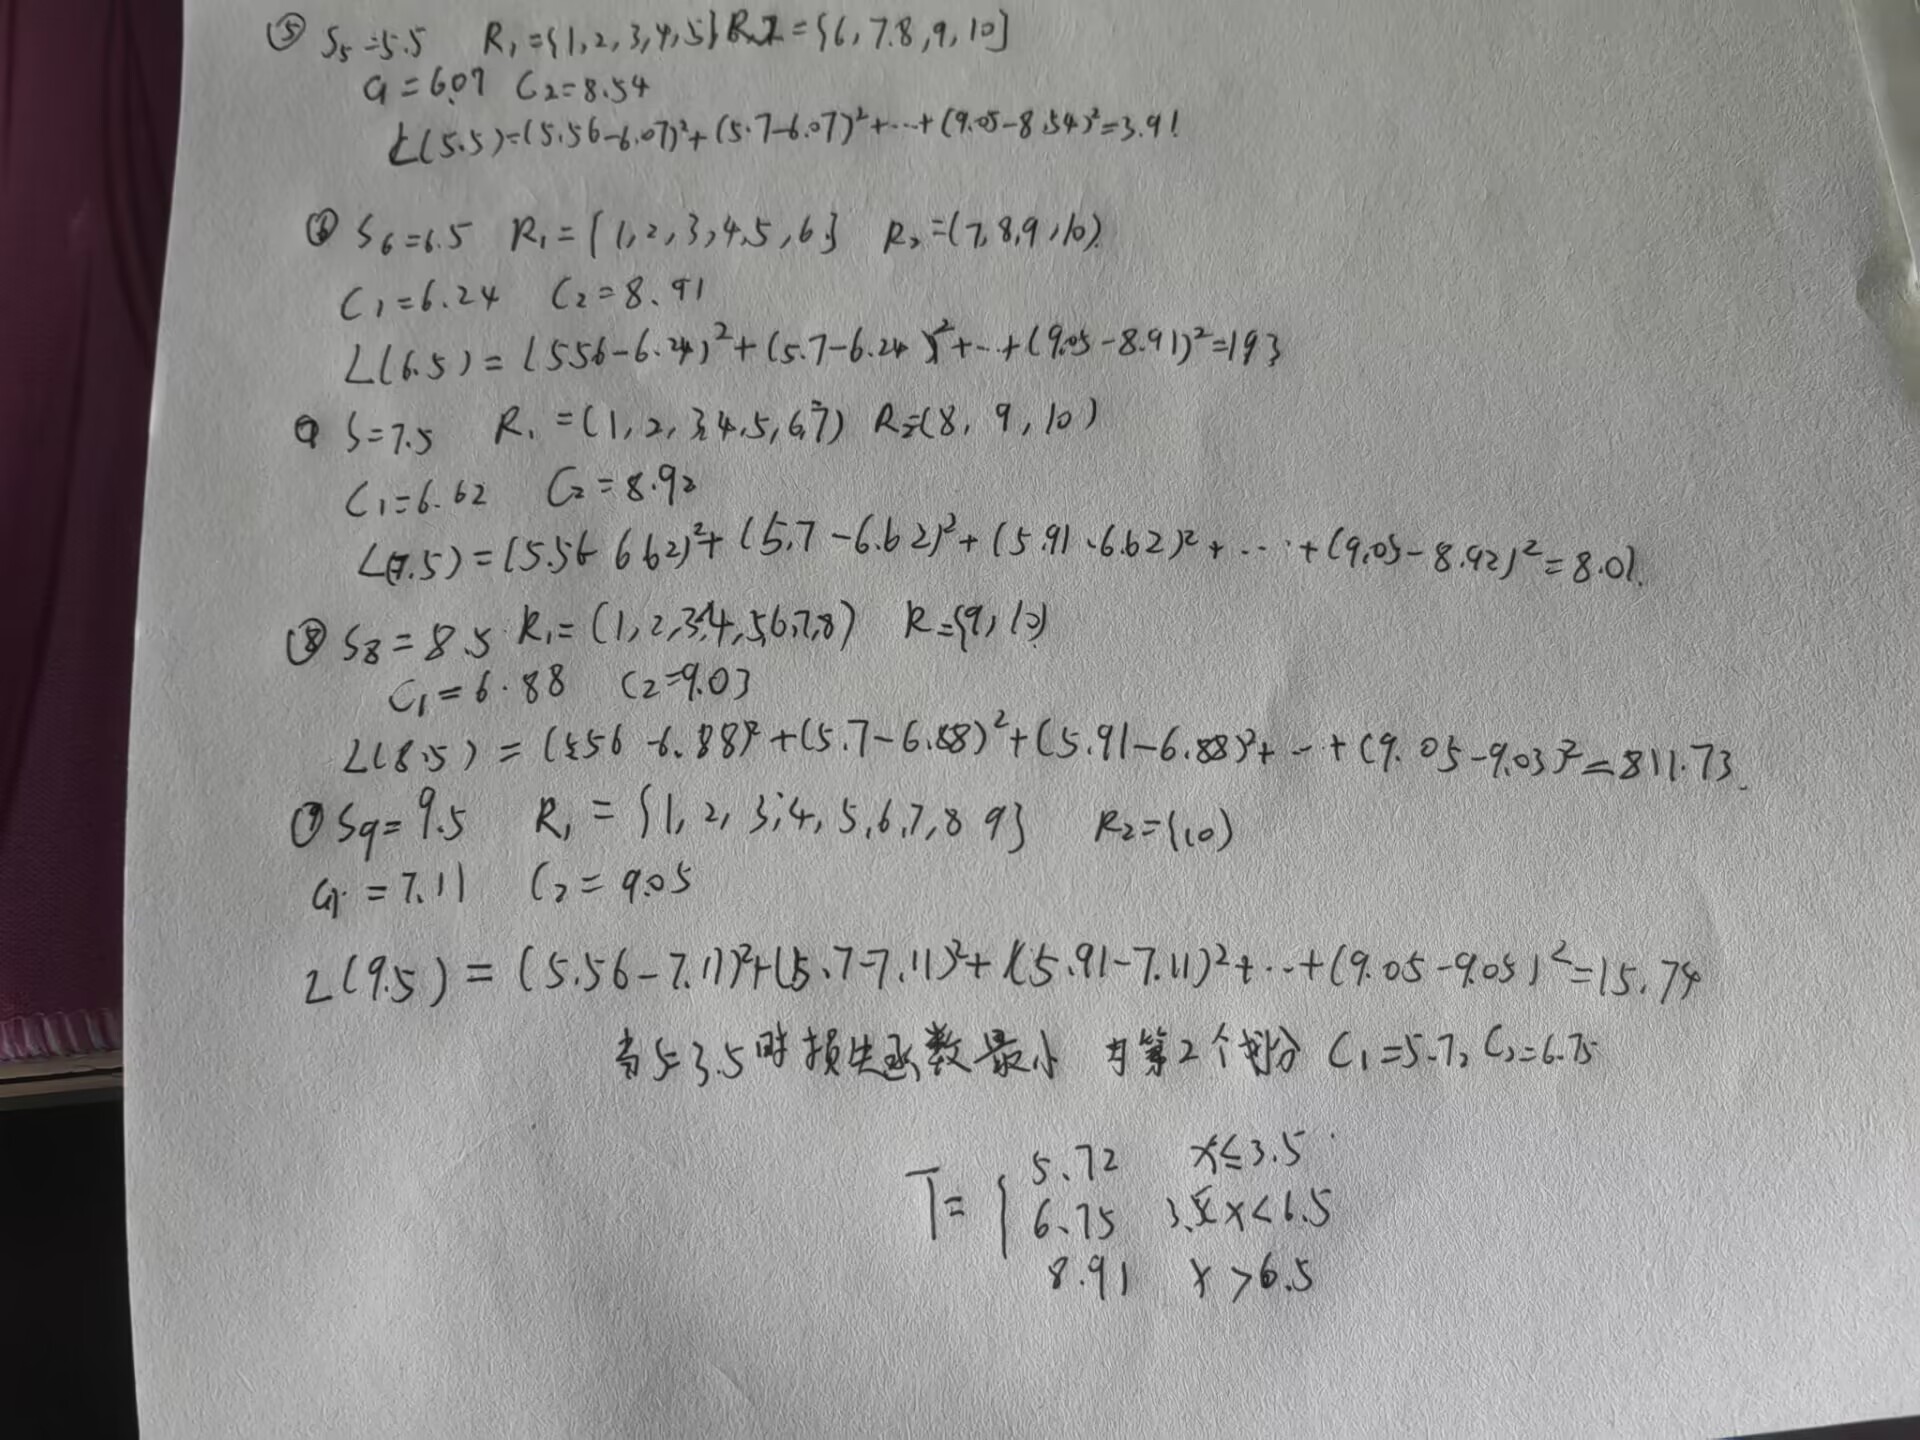 ⑤ S₅=5.5 R₁={1,2,3,4,5} R₂={6,7.8,9,10]
C₁=6.07 C₂=8.54
L(5.5)=(5.56-6.07)²+(5.7-6.07)²+…+(9.05-8.54)²=3.91
⑥ S₆=6.5 R₁={1,2,3,4,5,6} R₂=(7,8,9,10)
C₁=6.24 C₂=8.91
L(6.5)=(5.56-6.24)²+(5.7-6.24)²+…+(9.05-8.91)²=193
⑦ S=7.5 R₁=(1,2,3,4,5,6,7) R₂=(8,9,10)
C₁=6.62 C₂=8.92
L(7.5)=(5.56 6.62)²+(5.7-6.62)²+(5.91-6.62)²+…+(9.05-8.92)²=8.01.
⑧ S₈=8.5 R₁=(1,2,3,4,5,6,7,8) R={9,10)
C₁=6.88 C₂=9.03
L(8.5)=(5.56-6.88)²+(5.7-6.88)²+(5.91-6.88)²+…+(9.05-9.03)²=811.73
⑨ S₉=9.5 R₁={1,2,3,4,5,6,7,8 9} R₂={10)
C₁=7.11 C₂=9.05
L(9.5)=(5.56-7.11)²+(5.7-7.11)²+(5.91-7.11)²+…+(9.05-9.05)²=15.74
当S=3.5时损失函数最小 第2个划分 C₁=5.72 C₂=6.75
T={ 5.72 x≤3.5
6.75 3.5<x<6.5
8.91 x>6.5